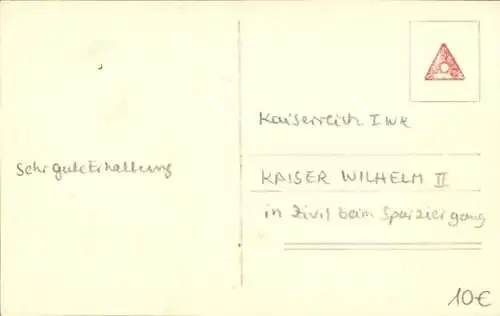 Kaiserreich I WK
Sehr gute Erhaltung
KAISER WILHELM II
in Zivil beim Spaziergang
10€